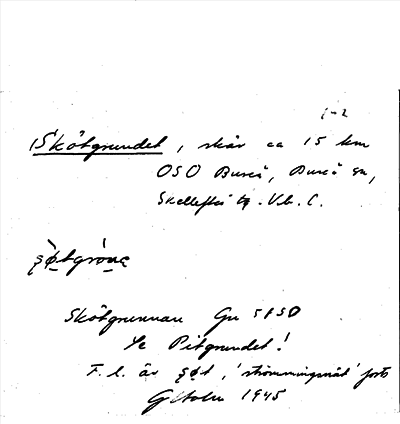 1-2
Skötgrundet, skär ca 15 km
OSO Bureå, Bureå sn,
Skellefteå tg. Vb. l.
şø̀tgròṇa
Skötgrunnan Gu 5/50
Se Pitgrundet!
F. l. är şøt, 'strömmingsnät'
G Holm 1945